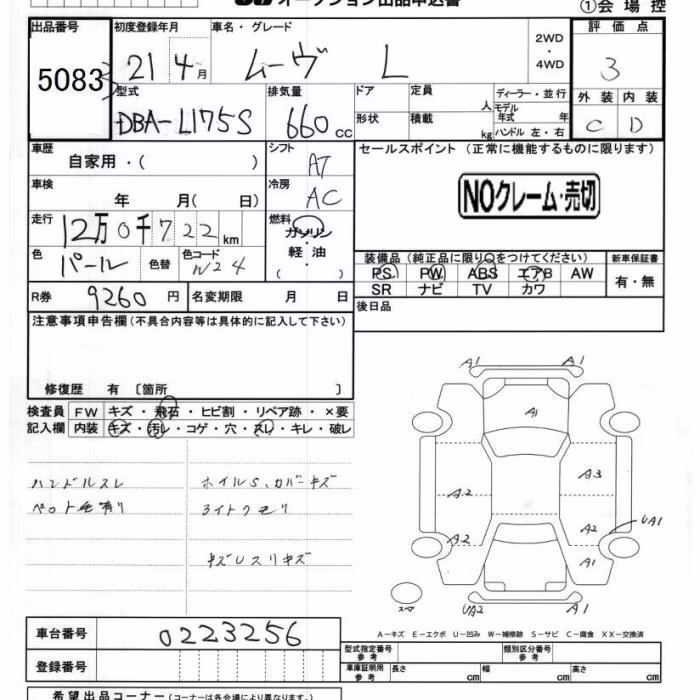 オークション出品申込書
①会場控
出品番号 初度登録年月 車名・グレード 2WD・4WD 評価点
5083 21 4月 ムーヴ L 3
型式 排気量 ドア 定員 人 ディーラー・並行 外装 内装
モデル年式 年
DBA-L175S 660cc 形状 積載 kg ハンドル 左・右 C D
車歴 シフト セールスポイント (正常に機能するものに限ります)
自家用・( ) AT
車検 冷房 NOクレーム・売切
年 月( 日) AC
走行 燃料
12万0千722km ガソリン・軽油( )
色 色替 色コード 装備品(純正品に限り○をつけてください) 新車保証書
パール W24 PS PW ABS エアB AW 有・無
SR ナビ TV カワ
R券 9260円 名変期限 月 日 後日品
注意事項申告欄(不具合内容等は具体的に記入して下さい)
修復歴 有 〔箇所 〕
検査員 FW キズ・飛石・ヒビ割・リペア跡・×要
記入欄 内装 キズ・汚レ・コゲ・穴・スレ・キレ・破レ
ハンドルスレ ホイルS、カバーキズ
ペット毛有り ライトクモリ
キズUスリキズ
A1 A1
A1
A3
A2
A2 UA1
A2
A1
スペア UA2 A1
A-キズ E-エクボ U-凹み W-補修跡 S-サビ C-腐食 XX-交換済
車台番号 0223256
登録番号
型式指定番号 参考 類別区分番号 参考
車庫証明用 参考 長さ cm 幅 cm 高さ cm
希望出品コーナー(コーナーは各会場により異なります。)